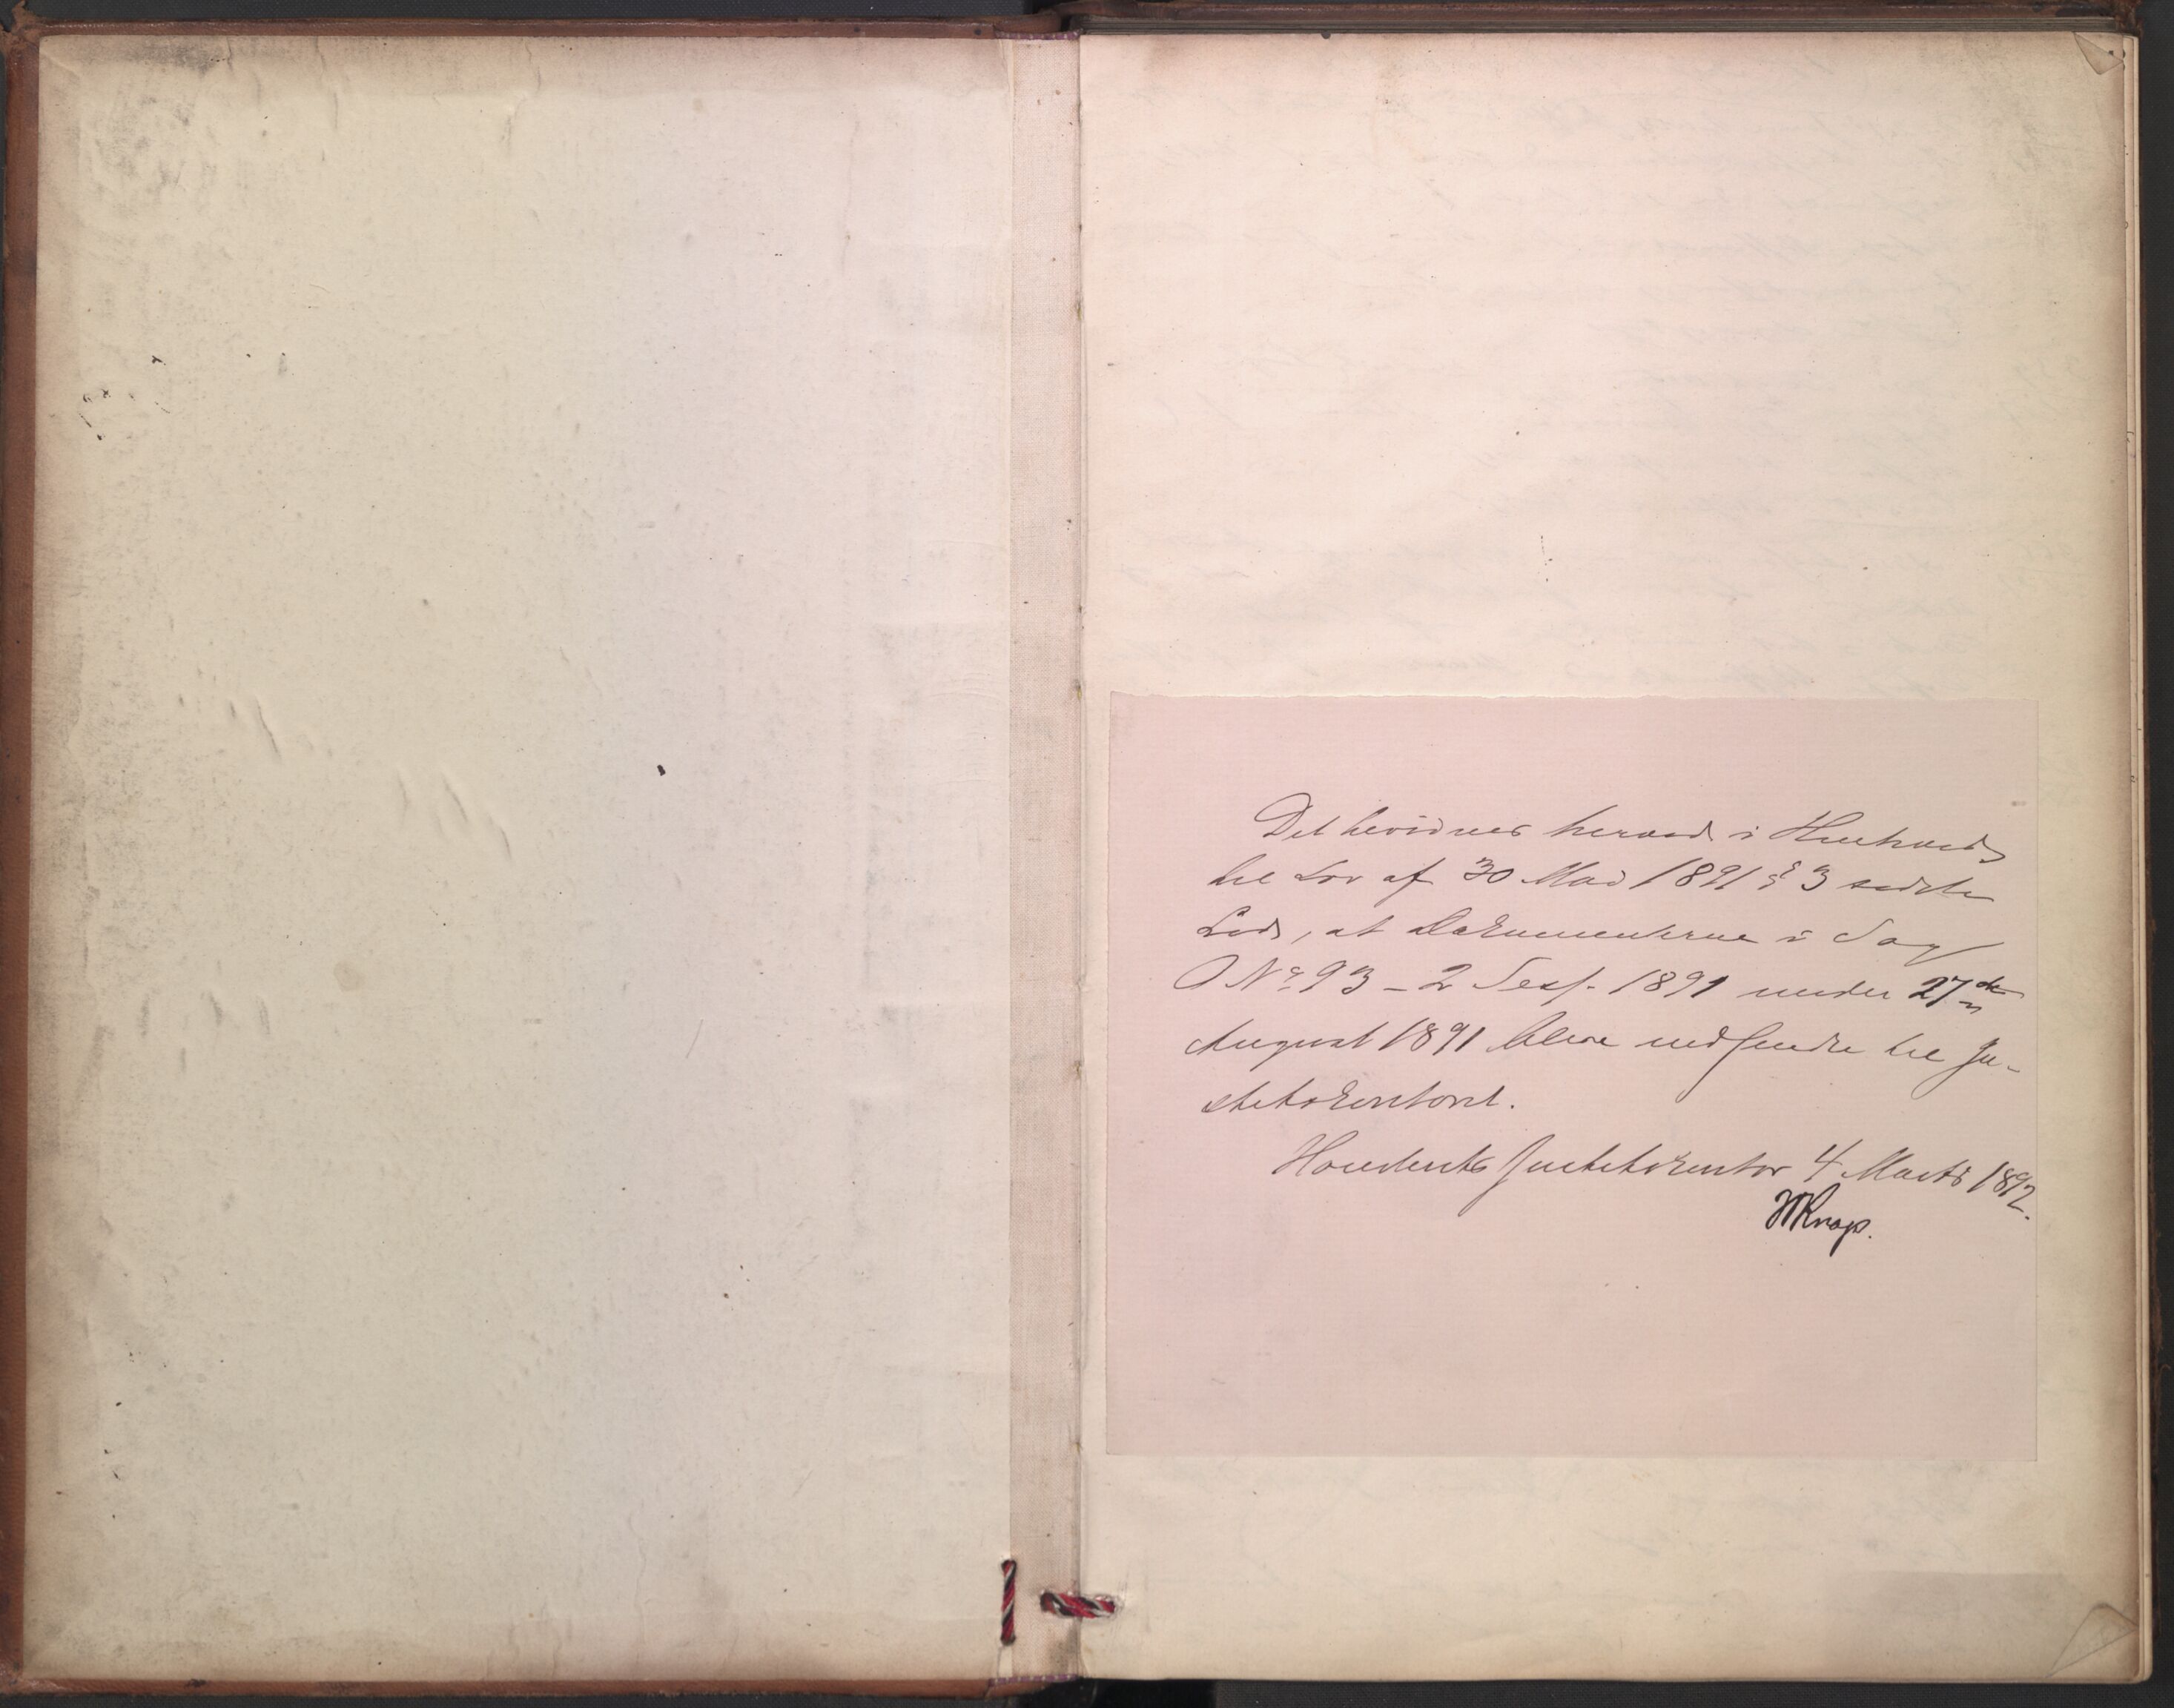 Det bevidnes herved i Henhold
til Lov af 30 Mai 1891 § 3 sidste
Led, at Dokumenterne i Sag
No 93 - 2 Sess. 1891 under 27de
August 1891 bleve nedsendte til Ju-
stitskontoret.
Justitskontor 4 Marts 1892.
Knap.